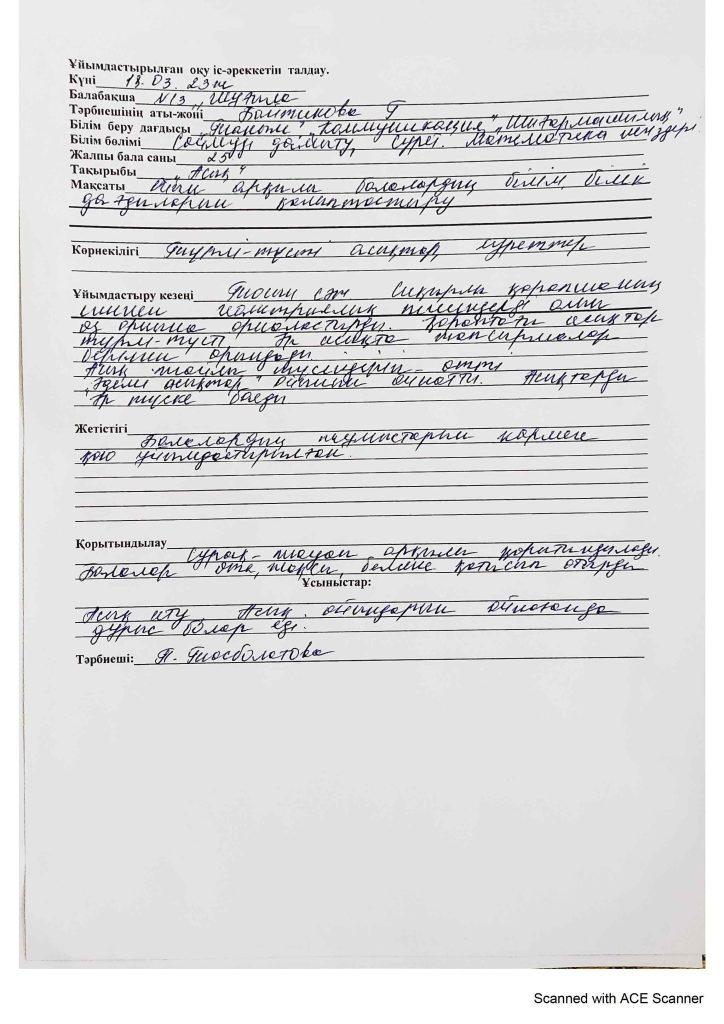 Ұйымдастырылған оқу іс-әреккетін талдау.
Күні 18. 03. 23ж
Балабақша N13 „Шұғыла
Тәрбиешінің аты-жөні Баитикова Г
Білім беру дағдысы „Таным" „Коммуникация" „Шығармашылық"
Білім бөлімі Сөйлеуді дамыту, сурет. Математика негіздері
Жалпы бала саны 25
Тақырыбы „Асық"
Мақсаты Ойын арқылы балалардың білім, білік
дағдыларын қалыптастыру
Көрнекілігі Түрлі-түсті асықтар, суреттер
Ұйымдастыру кезеңі Тосын сәт Сиқырлы қорапшаның
ішінен геометриялық пішіндерді алып
өз орнына орналастырды. Қораптағы асықтар
түрлі-түсті Әр асықта тапсырмалар
берілген орындады
Асық туралы түсіндіріп өтті
„Әдемі асықтар" ойынын ойнатты. Асықтарды
Әр түске бояды
Жетістігі Балалардың жұмыстарын көрмеге
қою ұйымдастырылған.
Қорытындылау Сұрақ-жауап арқылы қорытындылады.
Балалар өте жақсы, белсене қатысып отырды
Ұсыныстар:
Асық ату Асық ойындарын ойнағанда
дұрыс болар еді.
Тәрбиеші: П. Тосболатова